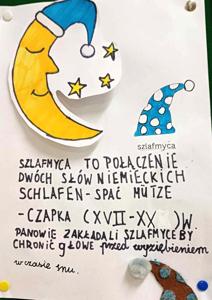 szlafmyca
SZLAFMYCA TO POŁĄCZENIE
DWÓCH SŁÓW NIEMIECKICH
SCHLAFEN-SPAĆ MÜTZE
-CZAPKA (XVII-XX)W.
PANOWIE ZAKŁADALI SZLAFMYCE BY
CHRONIĆ GŁOWĘ przed wyziębieniem
w czasie snu.